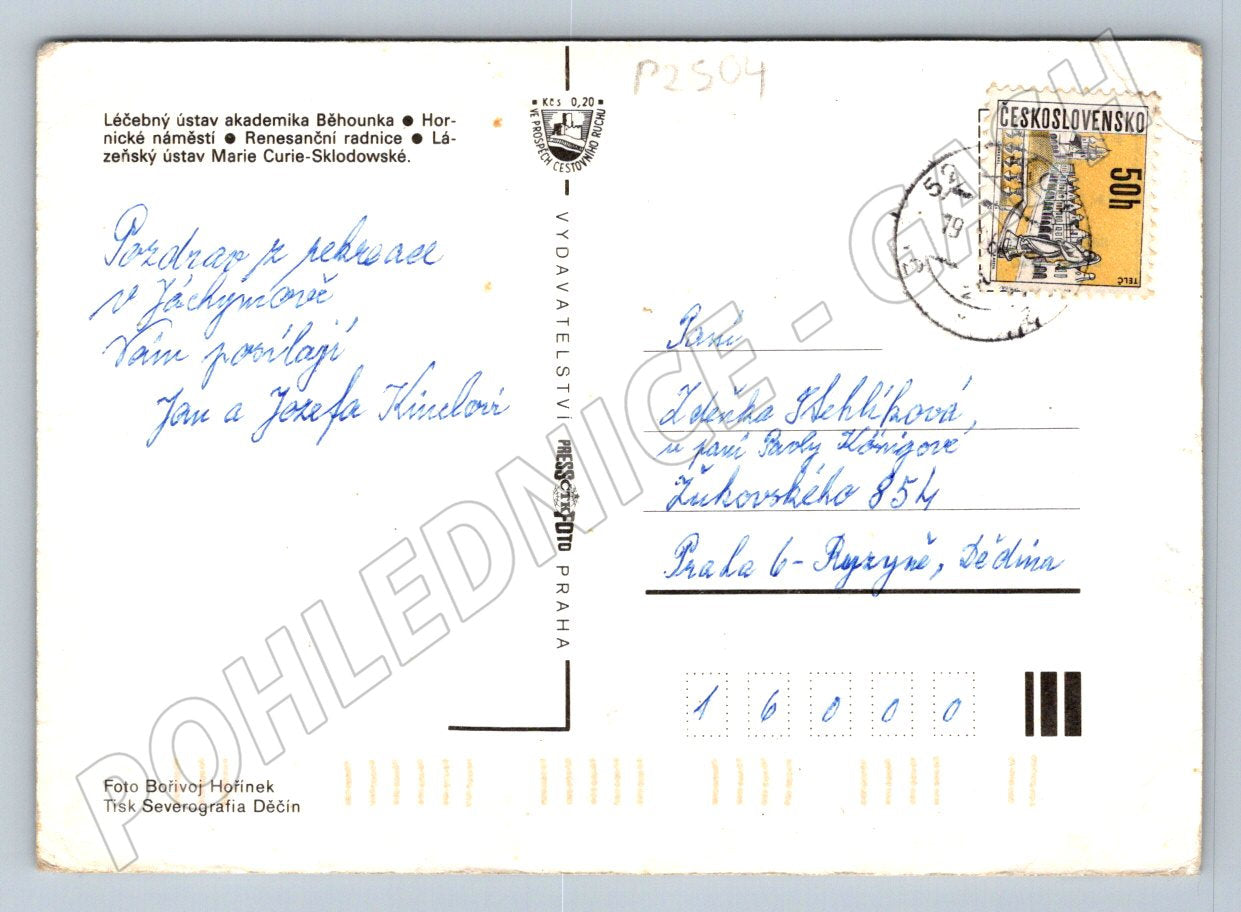 P2504
Léčebný ústav akademika Běhounka ● Hor-
nické náměstí ● Renesanční radnice ● Lá-
zeňský ústav Marie Curie-Sklodowské.
Kčs 0,20
VE PROSPĚCH CESTOVNÍHO RUCHU
ČESKOSLOVENSKO
50h
TELČ
Pozdrav z rekreace
v Jáchymově
Vám posílají
Jan a Jozefa
VYDAVATELSTVÍ
PRESSFOTO
ČTK
PRAHA
Paní
Zdeňka Stehlíková,
u paní Pavly Königové
Žukovského 854
Praha 6 - Ruzyně, Dědina
16000
Foto Bořivoj Hořínek
Tisk Severografia Děčín
POHLEDNICE - GASH